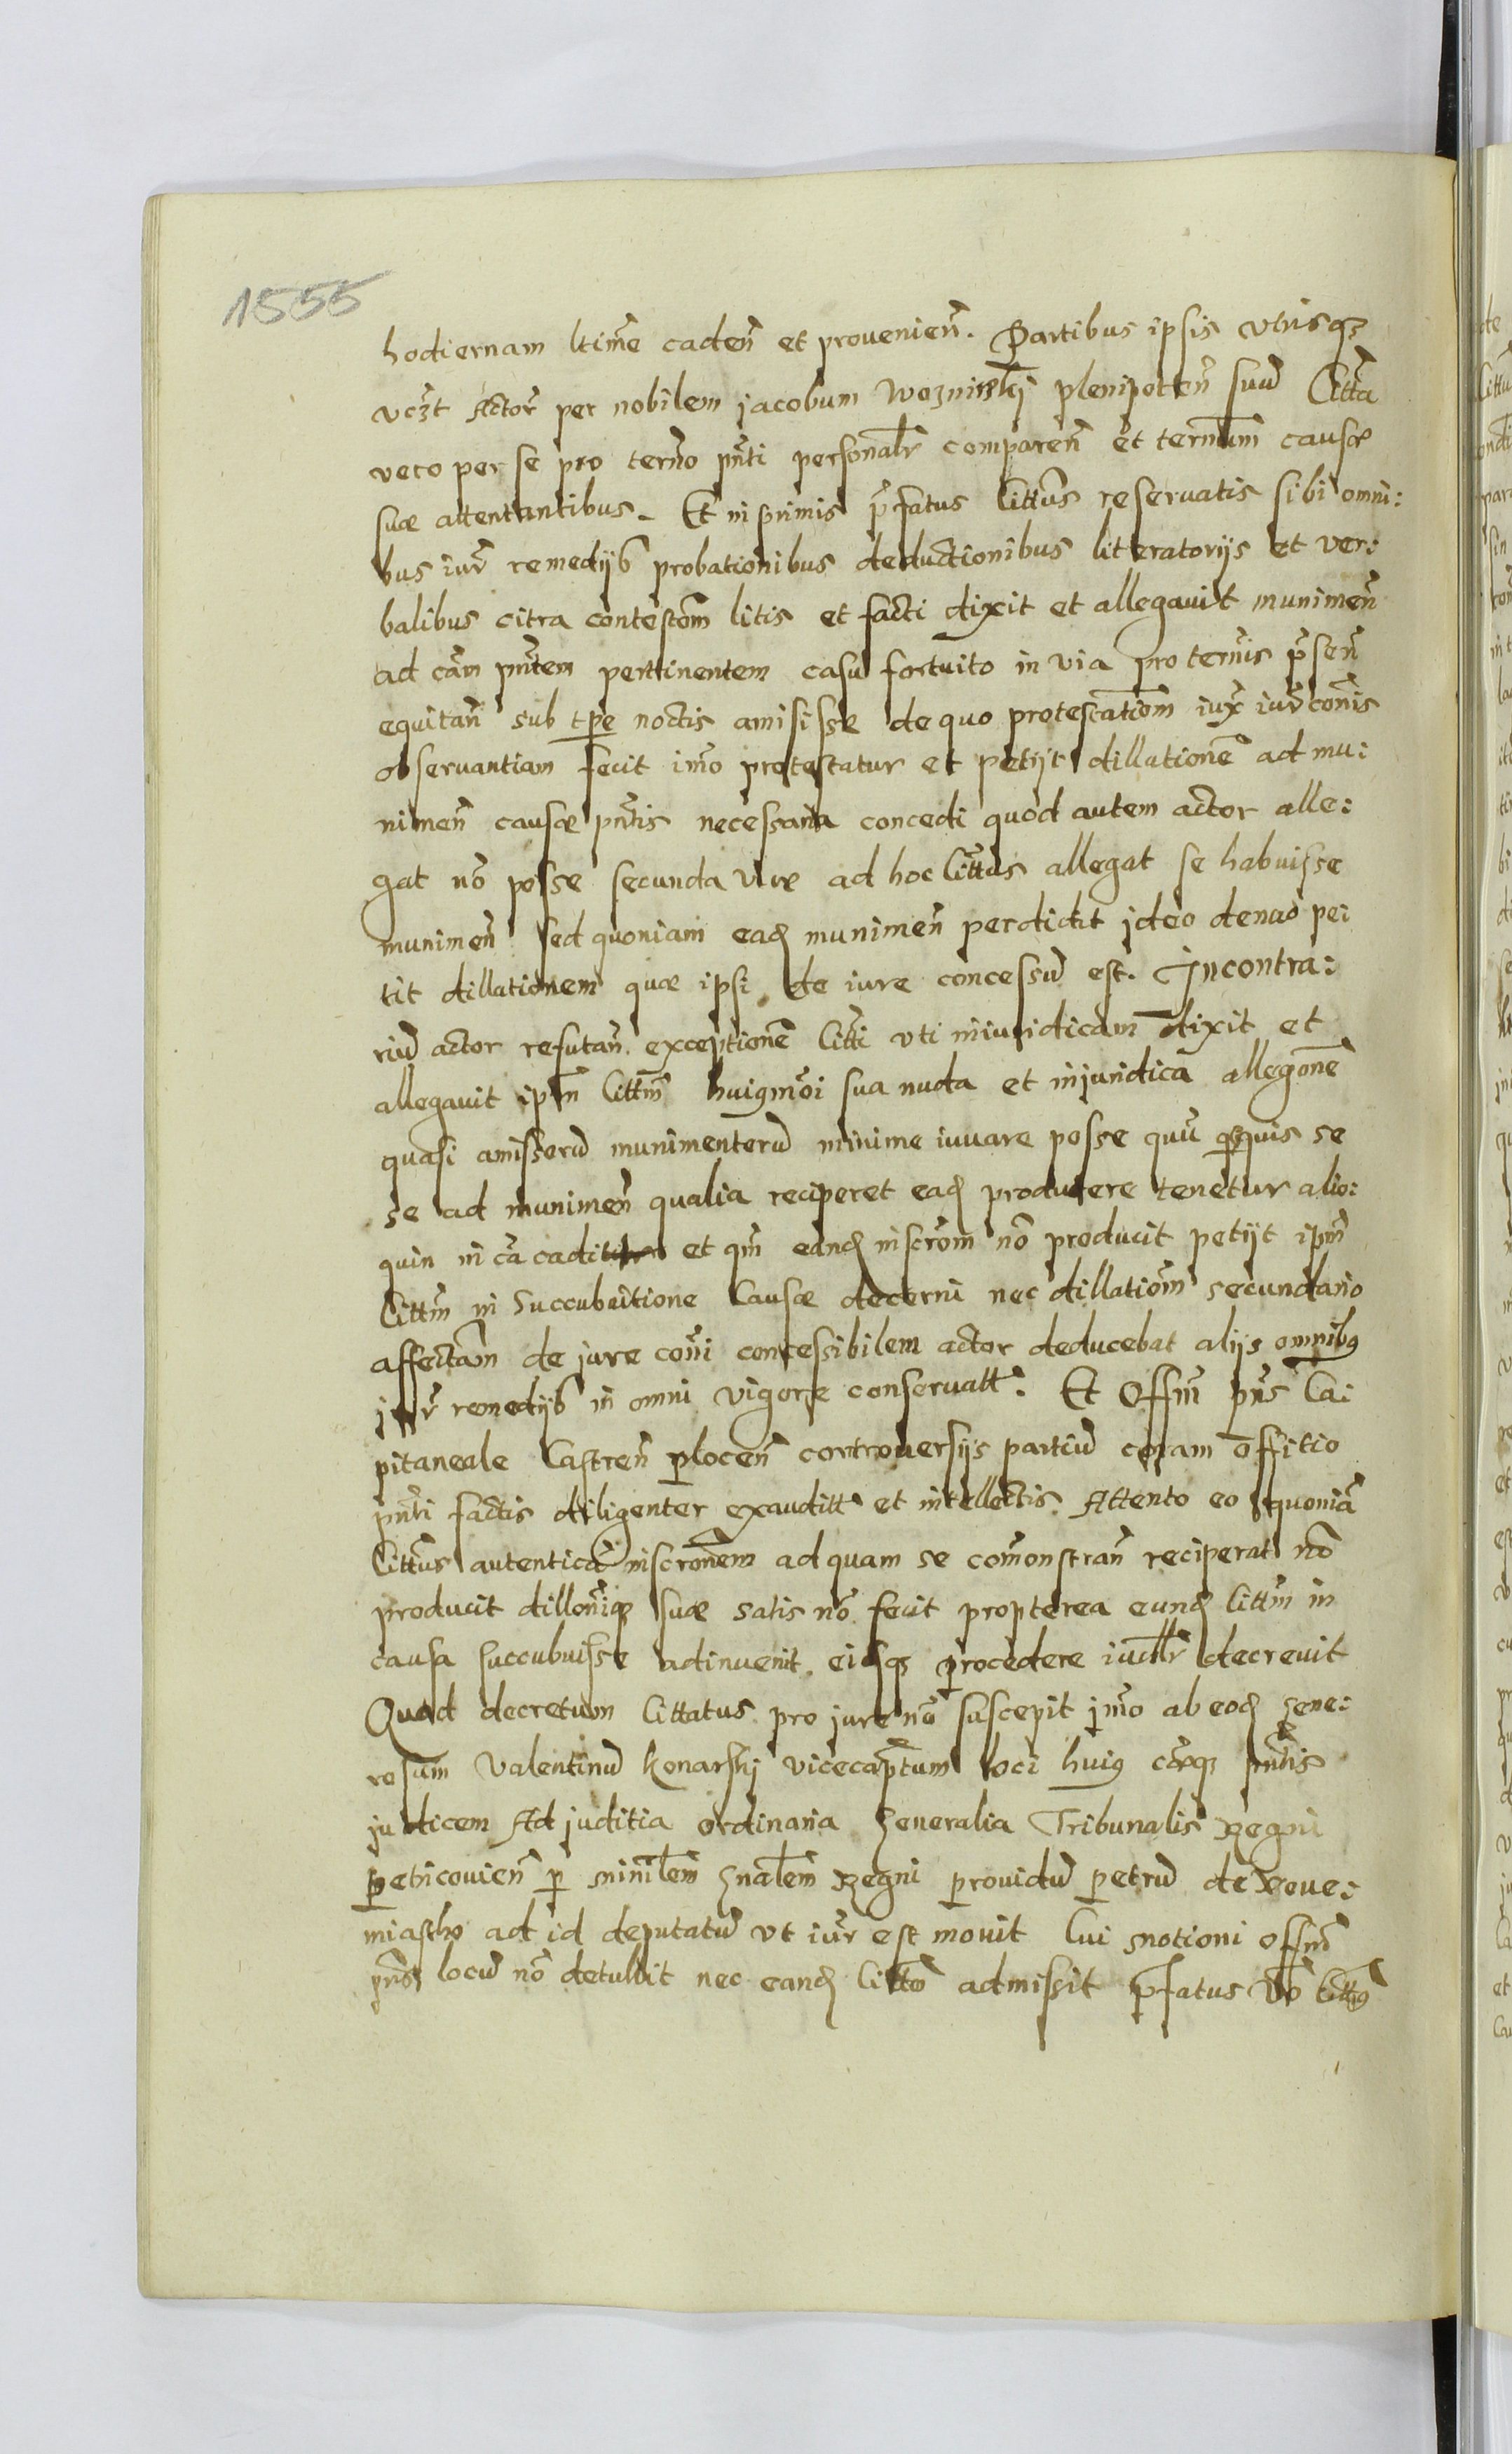 1555
hodiernam ltime caden̄ et prouenien̄. Partibus ipsis utrisqꝫ
uczt Actor̄ per nobilem jacobum Woznis̄kj plenipoten̄ suū Citt̄a
uero per se pro term̄o pn̄ti personalr̄ comparen̄ et termum causæ
suæ attentantibus. Et in primis p̄fatus Citt̄us reservatis sibi omni:
bus iur̄ remedijs probationibus deductionibus litteratorijs et ver:
balibus citra contestōm litis et facti dixit et allegauit munimen̄
ad cām pn̄tem pertinentem casu fortuito in via pro termīs p̄sen̄
equitan̄ sub tp̄e noctis amisisse de quo protestatīom iux̄ iur̄ com̄is
observantiam fecit im̄o protestatur et petijt dillationē ad mu:
nimen̄ causæ pn̄tis necessaria concedi quod autem actor alle:
gat nō posse secunda vice ad hoc Citt̄us allegat se habuisse
munimen̄ sed quoniam eadꝫ munimen̄ perdidit jdeo denuo pe:
tit dillationem quæ ipsi de iure concessū est. Incontra:
riū actor refutan̄ exceptionē Citt̄i uti iniuridicam dixit et
allegauit ip̄m Citt̄m huigmōi sua nuda et injuridicā allegōnē
quasi amisserū munimenterū minime iuuare posse quū qꝫquis se
se ad munimen̄ qualia reciperet eadꝫ producere tenetur alio:
quin in cā cadit et qm̄ eandꝫ inscrōm nō producit petijt ipm̄
Citt̄m in Succubuitione Causæ decerni nec dillatiōm secundario
affectam̄ de jure com̄i concessibilem actor deducebat alijs omnibꝰ
jur̄ remedijs in omni vigore conseruatt̄. Et Offm̄ pn̄s Ca:
pitaneale Castren̄ plocen̄ controuersijs partiū coram offitio
pn̄ti factis diligenter exauditt̄ et intellectis. Attento eo quoniā
Citt̄us autenticā inscrōnem ad quam se com̄onstran̄ reciperat nō
producit dillōniqꝫ suæ satis nō fecit propterea eundꝫ Citt̄m in
causa succubuisse adinuenit. eidqꝫ procedere iudlr̄ decreuit
Quod decretum Cittatus pro jure nō suscepit jm̄o ab eodꝫ gene:
rosum Valentinū Konarskj vicecap̄tum loci huiꝰ cāqꝫ pn̄tis
judicem Ad juditia ordinaria Generalia Tribunalis Regni
petricouien̄ p̄ minilem̄ Gn̄alem̄ Regni prouidū petrū de Noue:
miastho ad id deputatū ut iur̄ est mouit Cui motioni Offm̄
pn̄s locū nō detullit nec eandꝫ Citt̄o admissit p̄fatus v̄o Citt̄ꝰ